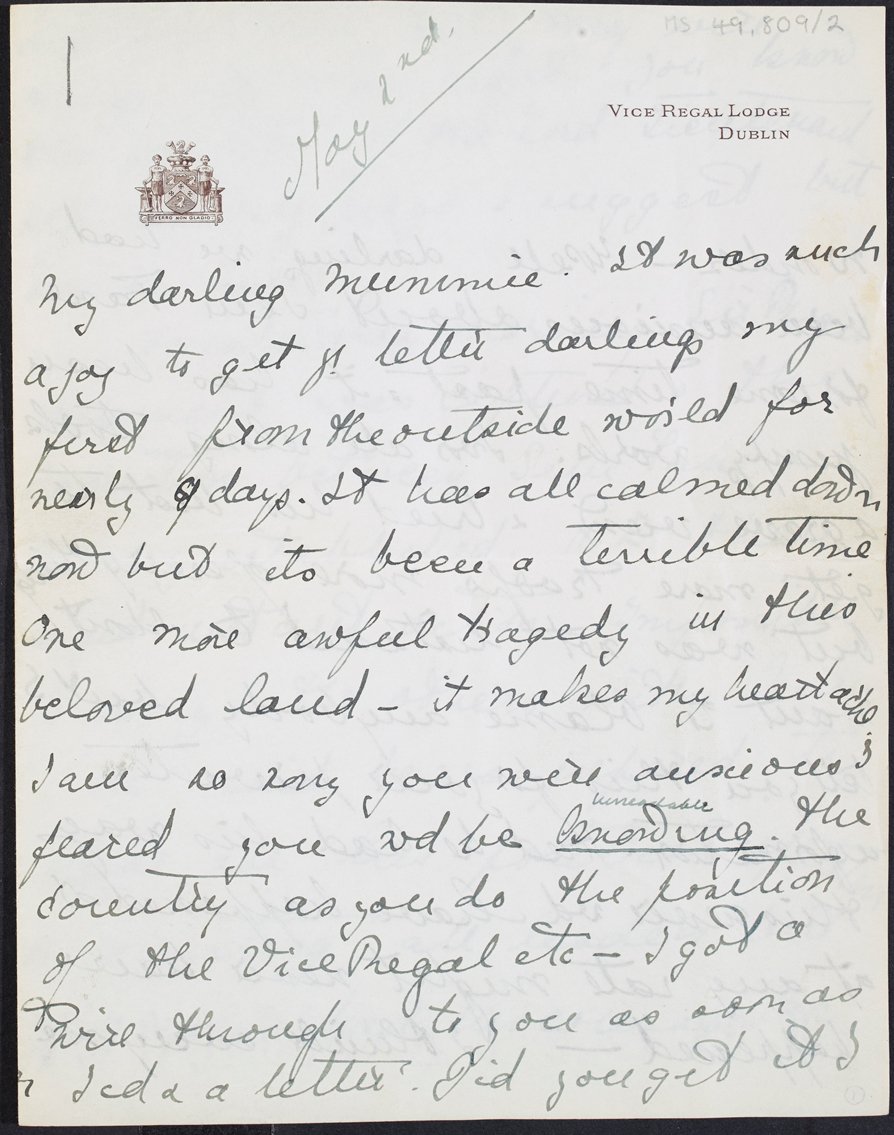 MS 49,809/2
May 2nd.
VICE REGAL LODGE
DUBLIN
FERRO NON GLADIO
My darling Mummie. It was such
a joy to get yr letter darling my
first from the outside world for
nearly 9 days. It has all calmed down
now but its been a terrible time
One more awful tragedy in this
beloved land – it makes my heart ache
I am so sorry you were anxious I
feared you wd be knowing. the
country as you do the position
of the Vice Regal etc – I got a
wire through to you as soon as
I cd & a letter. Did you get it I